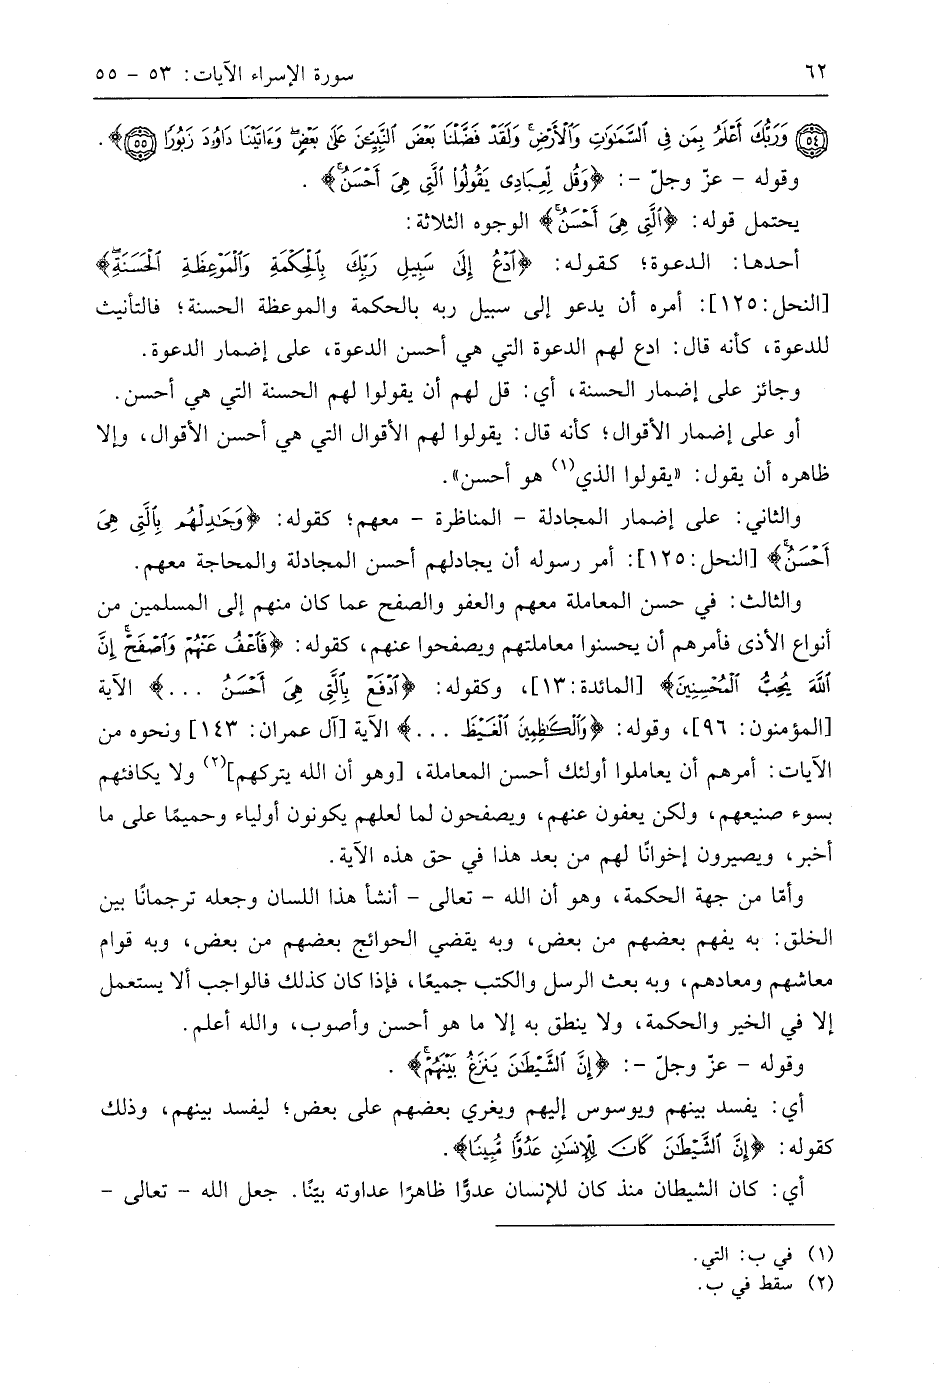 ٦٢ سورة الإسراء الآيات: ٥٣ - ٥٥
﴿٥٤﴾ وَرَبُّكَ أَعْلَمُ بِمَن فِي ٱلسَّمَٰوَٰتِ وَٱلْأَرْضِۗ وَلَقَدْ فَضَّلْنَا بَعْضَ ٱلنَّبِيِّـۧنَ عَلَىٰ بَعْضٍۖ وَءَاتَيْنَا دَاوُۥدَ زَبُورًا ﴿٥٥﴾﴾.
وقوله - عزّ وجلّ -: ﴿وَقُل لِّعِبَادِى يَقُولُوا۟ ٱلَّتِى هِىَ أَحْسَنُۚ﴾ .
يحتمل قوله: ﴿ٱلَّتِى هِىَ أَحْسَنُۚ﴾ الوجوه الثلاثة:
أحدها: الدعوة؛ كقوله: ﴿ٱدْعُ إِلَىٰ سَبِيلِ رَبِّكَ بِٱلْحِكْمَةِ وَٱلْمَوْعِظَةِ ٱلْحَسَنَةِۖ﴾
[النحل:١٢٥]: أمره أن يدعو إلى سبيل ربه بالحكمة والموعظة الحسنة؛ فالتأنيث
للدعوة، كأنه قال: ادع لهم الدعوة التي هي أحسن الدعوة، على إضمار الدعوة.
وجائز على إضمار الحسنة، أي: قل لهم أن يقولوا لهم الحسنة التي هي أحسن.
أو على إضمار الأقوال؛ كأنه قال: يقولوا لهم الأقوال التي هي أحسن الأقوال، وإلا
ظاهره أن يقول: «يقولوا الذي(١) هو أحسن».
والثاني: على إضمار المجادلة - المناظرة - معهم؛ كقوله: ﴿وَجَٰدِلْهُم بِٱلَّتِى هِىَ
أَحْسَنُۚ﴾ [النحل:١٢٥]: أمر رسوله أن يجادلهم أحسن المجادلة والمحاجة معهم.
والثالث: في حسن المعاملة معهم والعفو والصفح عما كان منهم إلى المسلمين من
أنواع الأذى فأمرهم أن يحسنوا معاملتهم ويصفحوا عنهم، كقوله: ﴿فَٱعْفُ عَنْهُمْ وَٱصْفَحْۚ إِنَّ
ٱللَّهَ يُحِبُّ ٱلْمُحْسِنِينَ﴾ [المائدة:١٣]، وكقوله: ﴿ٱدْفَعْ بِٱلَّتِى هِىَ أَحْسَنُ ...﴾ الآية
[المؤمنون: ٩٦]، وقوله: ﴿وَٱلْكَٰظِمِينَ ٱلْغَيْظَ ...﴾ الآية [آل عمران: ١٤٣] ونحوه من
الآيات: أمرهم أن يعاملوا أولئك أحسن المعاملة، [وهو أن الله يتركهم](٢) ولا يكافئهم
بسوء صنيعهم، ولكن يعفون عنهم، ويصفحون لما لعلهم يكونون أولياء وحميمًا على ما
أخبر، ويصيرون إخوانًا لهم من بعد هذا في حق هذه الآية.
وأمّا من جهة الحكمة، وهو أن الله - تعالى - أنشأ هذا اللسان وجعله ترجمانًا بين
الخلق: به يفهم بعضهم من بعض، وبه يقضي الحوائج بعضهم من بعض، وبه قوام
معاشهم ومعادهم، وبه بعث الرسل والكتب جميعًا، فإذا كان كذلك فالواجب ألا يستعمل
إلا في الخير والحكمة، ولا ينطق به إلا ما هو أحسن وأصوب، والله أعلم.
وقوله - عزّ وجلّ -: ﴿إِنَّ ٱلشَّيْطَٰنَ يَنزَغُ بَيْنَهُمْۚ﴾ .
أي: يفسد بينهم ويوسوس إليهم ويغري بعضهم على بعض؛ ليفسد بينهم، وذلك
كقوله: ﴿إِنَّ ٱلشَّيْطَٰنَ كَانَ لِلْإِنسَٰنِ عَدُوًّا مُّبِينًا﴾.
أي: كان الشيطان منذ كان للإنسان عدوًّا ظاهرًا عداوته بيّنًا. جعل الله - تعالى -
(١) في ب: التي.
(٢) سقط في ب.